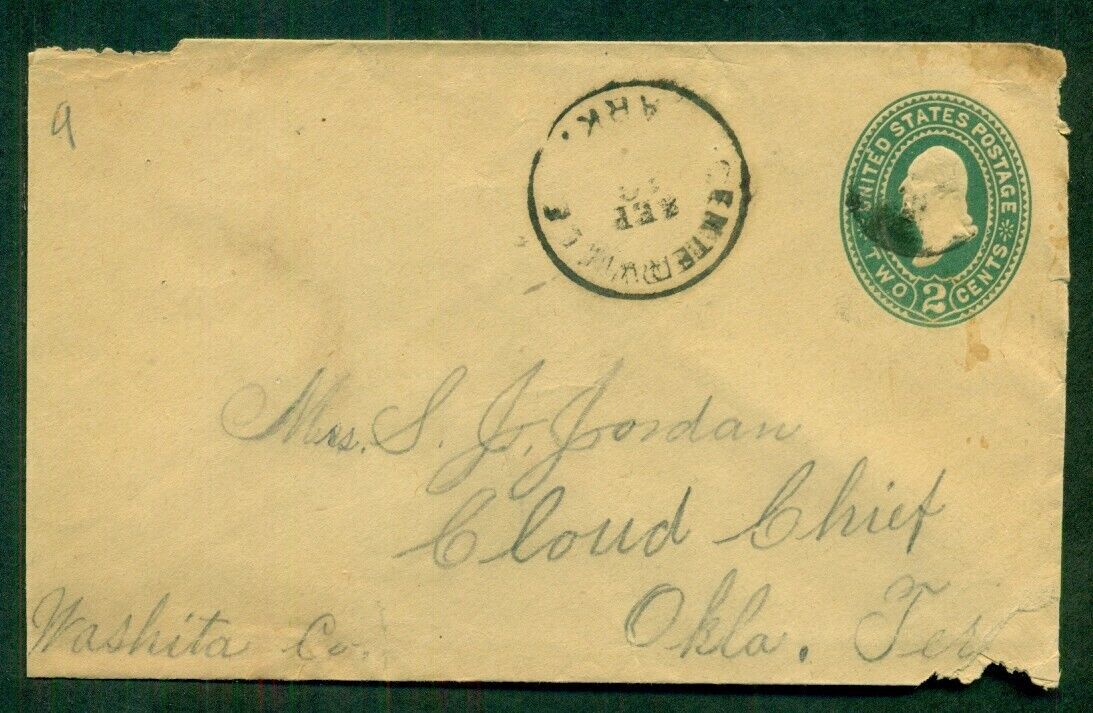 9
CENTERVILLE
ARK.
SEP
UNITED STATES POSTAGE
TWO 2 CENTS
Mrs. S. J. Jordan
Cloud Chief
Washita Co.
Okla. Ter